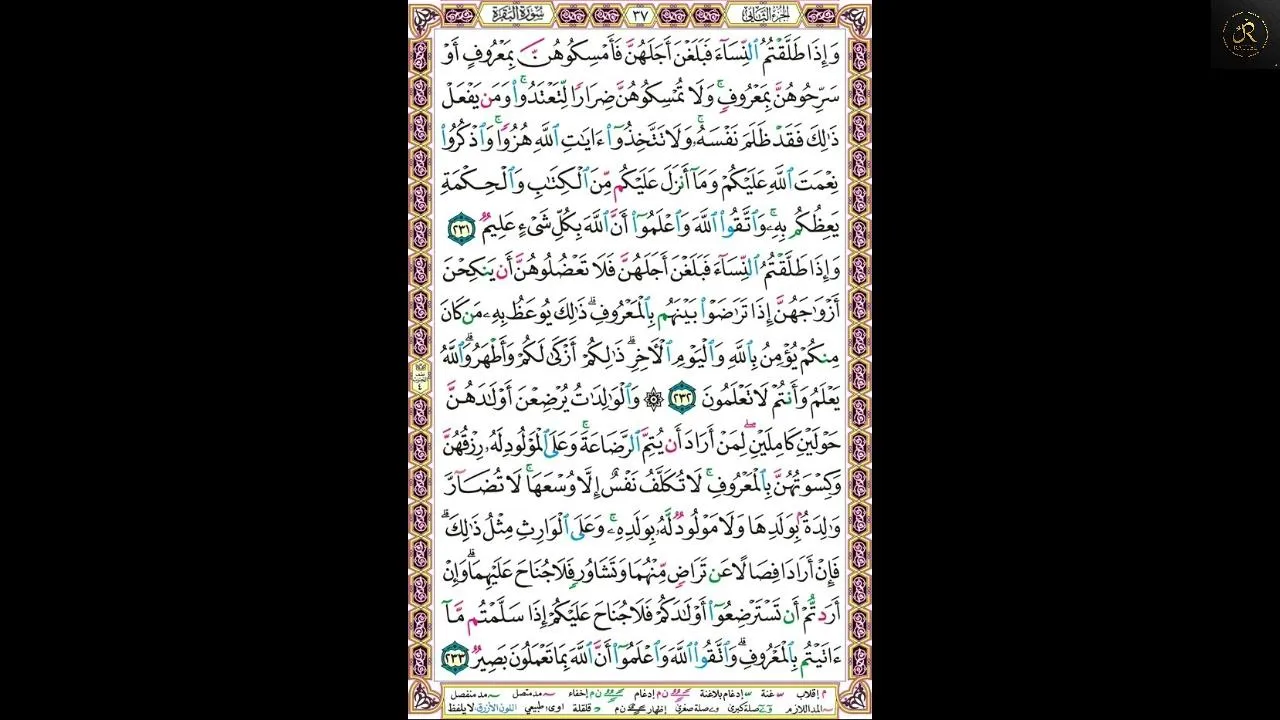 الجزء الثاني ٣٧ سورة البقرة
وَإِذَا طَلَّقْتُمُ ٱلنِّسَآءَ فَبَلَغْنَ أَجَلَهُنَّ فَأَمْسِكُوهُنَّ بِمَعْرُوفٍ أَوْ
سَرِّحُوهُنَّ بِمَعْرُوفٍۚ وَلَا تُمْسِكُوهُنَّ ضِرَارًا لِّتَعْتَدُوا۟ۚ وَمَن يَفْعَلْ
ذَٰلِكَ فَقَدْ ظَلَمَ نَفْسَهُۥۚ وَلَا تَتَّخِذُوٓا۟ ءَايَٰتِ ٱللَّهِ هُزُوًاۚ وَٱذْكُرُوا۟
نِعْمَتَ ٱللَّهِ عَلَيْكُمْ وَمَآ أَنزَلَ عَلَيْكُم مِّنَ ٱلْكِتَٰبِ وَٱلْحِكْمَةِ
يَعِظُكُم بِهِۦۚ وَٱتَّقُوا۟ ٱللَّهَ وَٱعْلَمُوٓا۟ أَنَّ ٱللَّهَ بِكُلِّ شَىْءٍ عَلِيمٌ ٢٣١
وَإِذَا طَلَّقْتُمُ ٱلنِّسَآءَ فَبَلَغْنَ أَجَلَهُنَّ فَلَا تَعْضُلُوهُنَّ أَن يَنكِحْنَ
أَزْوَٰجَهُنَّ إِذَا تَرَٰضَوْا۟ بَيْنَهُم بِٱلْمَعْرُوفِۗ ذَٰلِكَ يُوعَظُ بِهِۦ مَن كَانَ
مِنكُمْ يُؤْمِنُ بِٱللَّهِ وَٱلْيَوْمِ ٱلْءَاخِرِۗ ذَٰلِكُمْ أَزْكَىٰ لَكُمْ وَأَطْهَرُۗ وَٱللَّهُ
يَعْلَمُ وَأَنتُمْ لَا تَعْلَمُونَ ٢٣٢ ۞ وَٱلْوَٰلِدَٰتُ يُرْضِعْنَ أَوْلَٰدَهُنَّ
حَوْلَيْنِ كَامِلَيْنِۖ لِمَنْ أَرَادَ أَن يُتِمَّ ٱلرَّضَاعَةَۚ وَعَلَى ٱلْمَوْلُودِ لَهُۥ رِزْقُهُنَّ
وَكِسْوَتُهُنَّ بِٱلْمَعْرُوفِۚ لَا تُكَلَّفُ نَفْسٌ إِلَّا وُسْعَهَاۚ لَا تُضَآرَّ
وَٰلِدَةٌۢ بِوَلَدِهَا وَلَا مَوْلُودٌ لَّهُۥ بِوَلَدِهِۦۚ وَعَلَى ٱلْوَارِثِ مِثْلُ ذَٰلِكَۗ
فَإِنْ أَرَادَا فِصَالًا عَن تَرَاضٍ مِّنْهُمَا وَتَشَاوُرٍ فَلَا جُنَاحَ عَلَيْهِمَاۗ وَإِنْ
أَرَدتُّمْ أَن تَسْتَرْضِعُوٓا۟ أَوْلَٰدَكُمْ فَلَا جُنَاحَ عَلَيْكُمْ إِذَا سَلَّمْتُم مَّآ
ءَاتَيْتُم بِٱلْمَعْرُوفِۗ وَٱتَّقُوا۟ ٱللَّهَ وَٱعْلَمُوٓا۟ أَنَّ ٱللَّهَ بِمَا تَعْمَلُونَ بَصِيرٌ ٢٣٣
م إقلاب غنة إدغام بلاغنة ن م إدغام ن م إخفاء مد متصل مد منفصل
المد اللازم صلة كبرى صلة صغرى إظهار ن م د قلقلة اوى طبيعي اللون الأزرق لا يلفظ